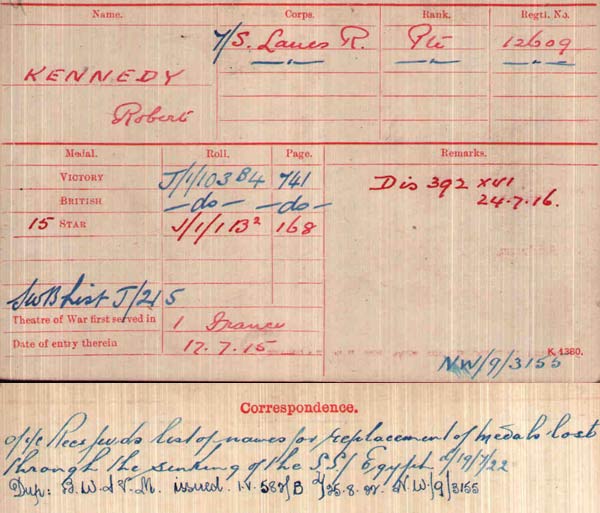 Name. Corps. Rank. Regtl. No.
7/S. Lancs R. Pte 12609
KENNEDY
Robert
Medal. Roll. Page. Remarks.
VICTORY J/1/103 B4 741
BRITISH —do— —do—
15 STAR J/1/1 B2 168
Dis 392 XVI
24.7.16.
SWB List J/215
Theatre of War first served in 1 France
Date of entry therein 17.7.15
K. 1380.
NW/9/3155
Correspondence.
o/i/c Recs fwds list of names for replacement of medals lost
through the sinking of the S.S/ Egypt d/19/7/22
Dup: B.W. & V.M. issued. I.V. 587/B d/25.8.22. N.W/9/3155